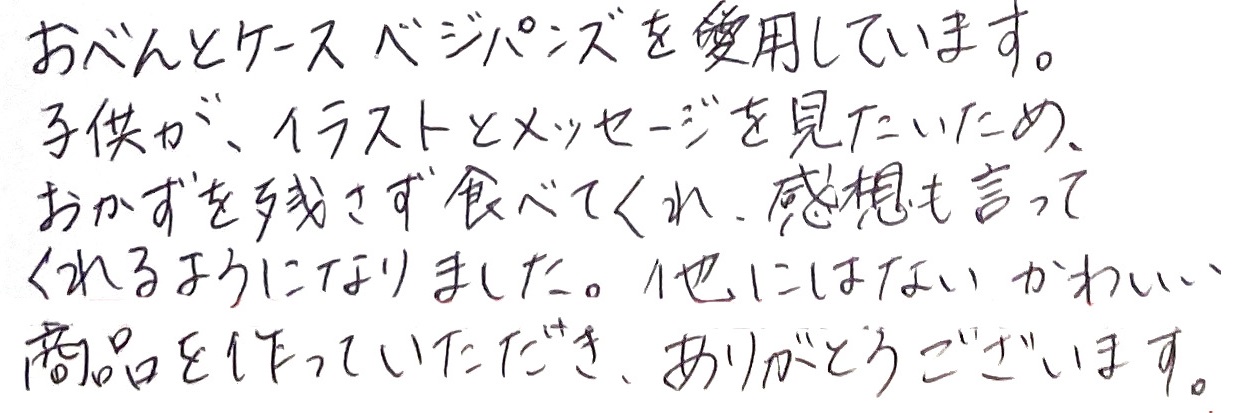 おべんとケース ベジパンズを愛用しています。
子供が、イラストとメッセージを見たいため、
おかずを残さず食べてくれ、感想も言って
くれるようになりました。他にはない かわいい
商品を作っていただき、ありがとうございます。